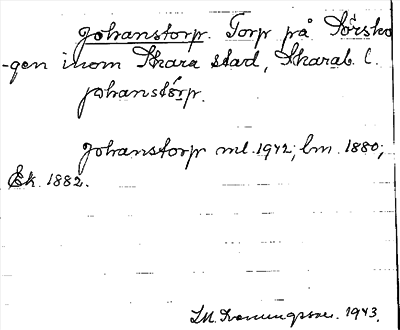 Johanstorp. Torp på Sörsko
-gen inom Skara stad, Skarab. l.
johanstörp.
Johanstorp ml. 1942; lm. 1880;
Ek. 1882.
1943.